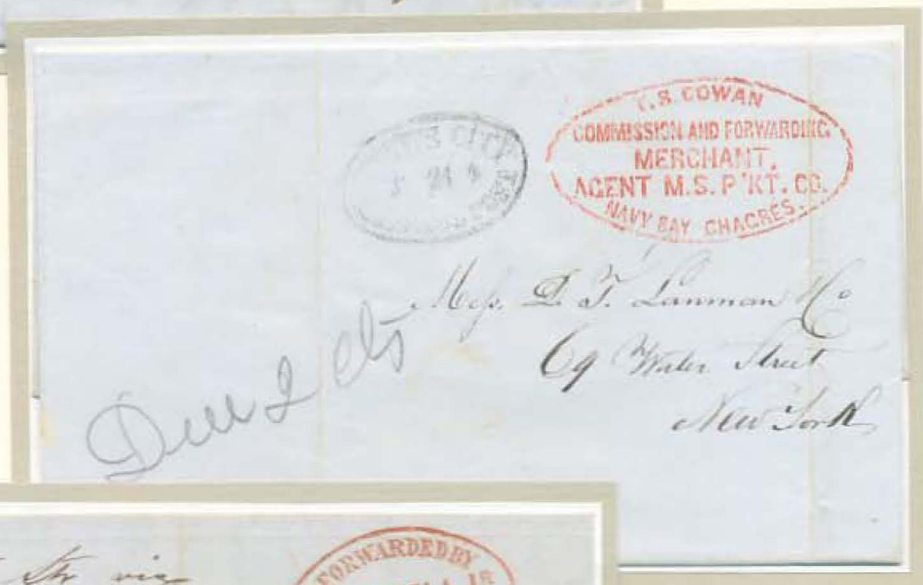 T. S. COWAN
COMMISSION AND FORWARDING
MERCHANT,
AGENT M.S. P'KT. CO.
NAVY BAY CHAGRES.
CITY
Mess. D. T. Lanman & Co
69 Water Street
New York
Due 2 cts
FORWARDED BY
via